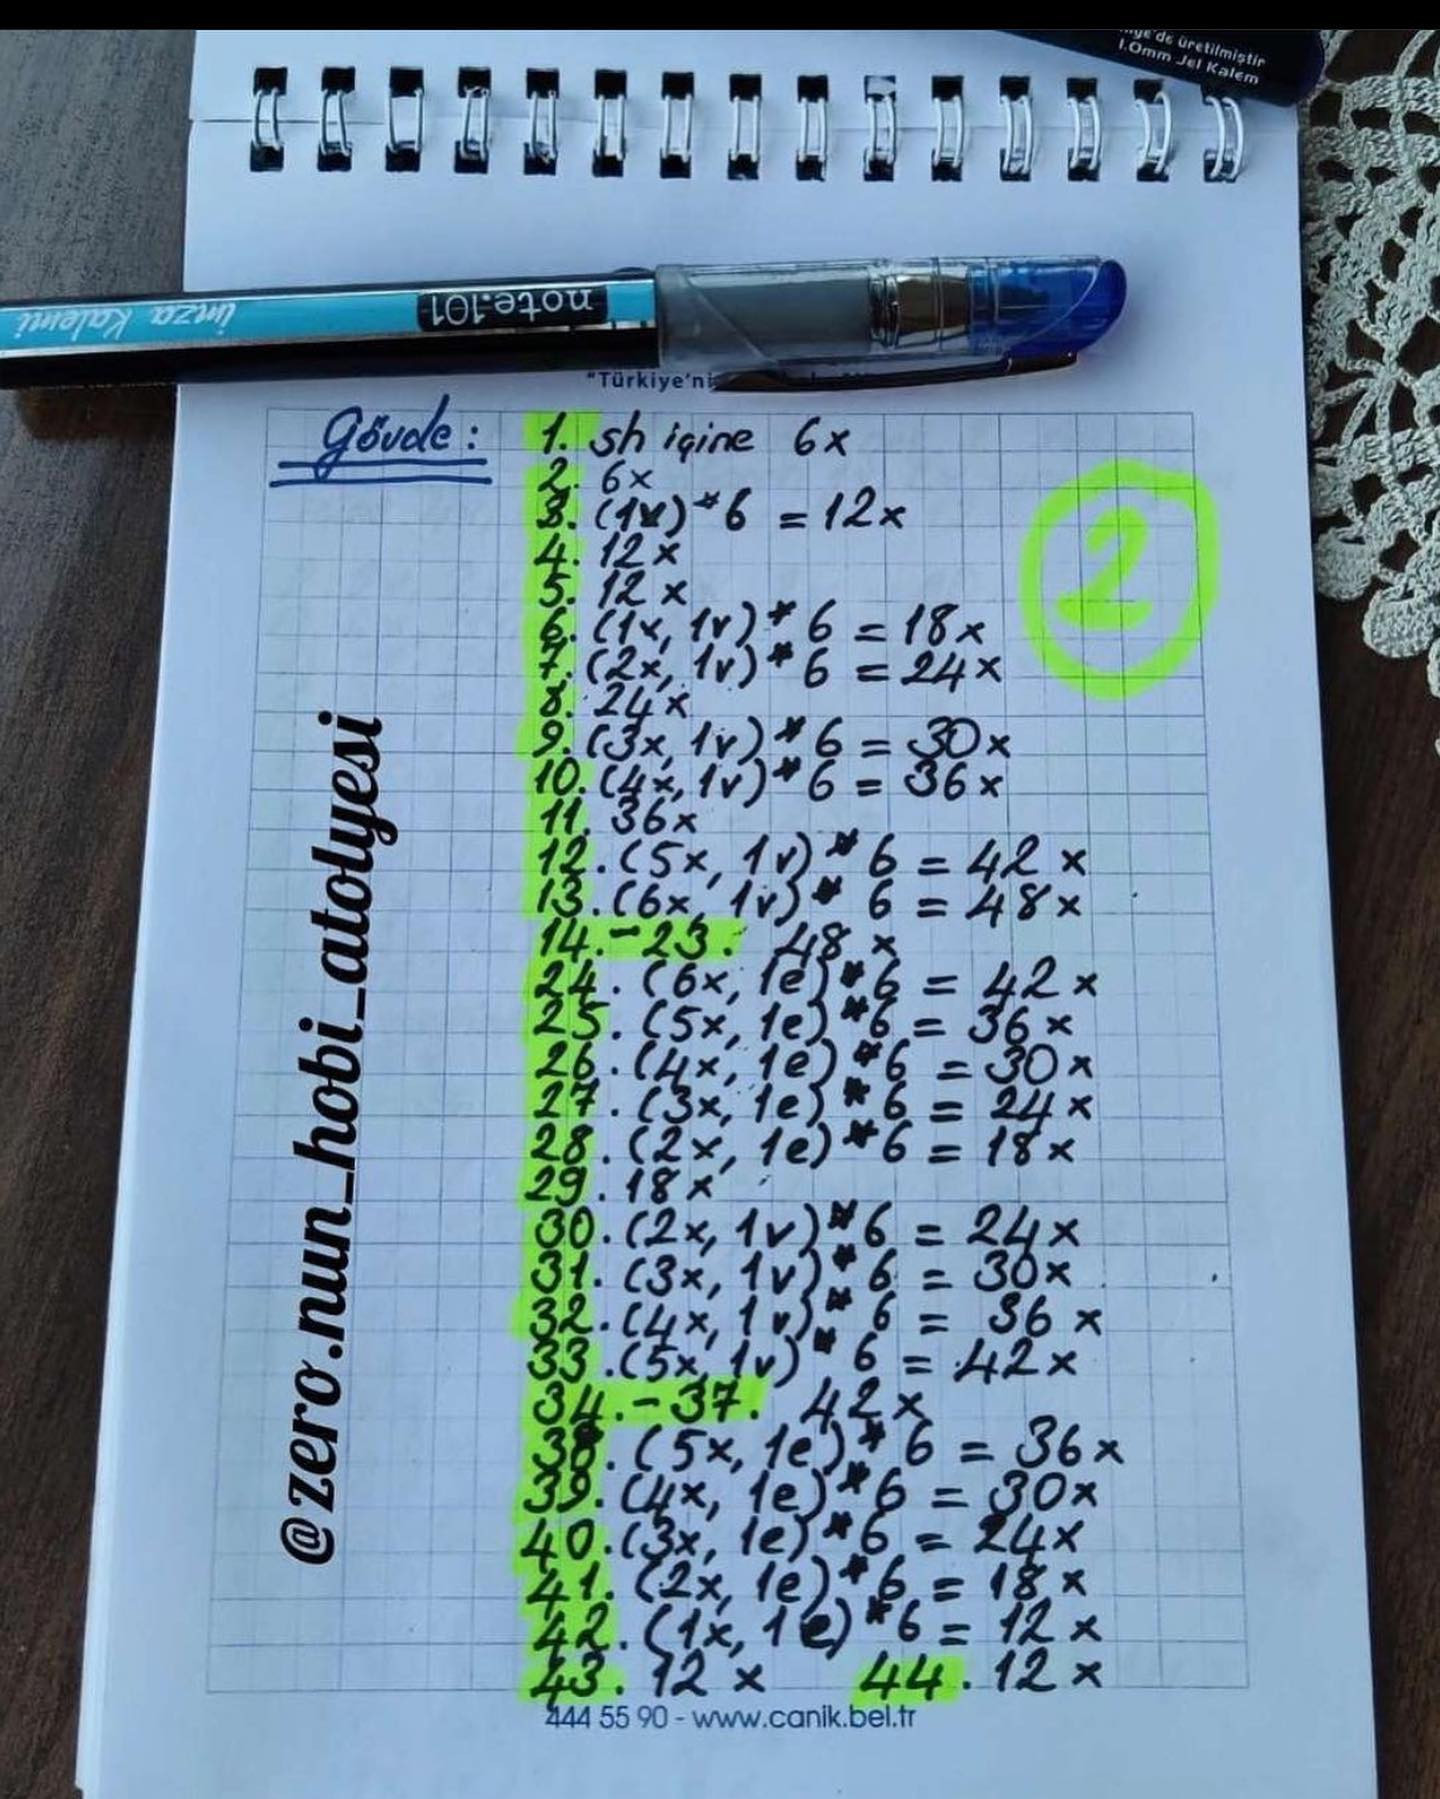 iye'de üretilmiştir
1.0mm Jel Kalem
note.101
imza Kalemi
"Türkiye'ni
Gövde:
1. sh içine 6x
2. 6x
3. (1v)*6 = 12x
4. 12x
5. 12x
6. (1x, 1v)*6 = 18x
7. (2x, 1v)*6 = 24x
8. 24x
9. (3x, 1v)*6 = 30x
10. (4x, 1v)*6 = 36x
11. 36x
12. (5x, 1v)*6 = 42x
13. (6x, 1v)*6 = 48x
14.-23. 48x
24. (6x, 1e)*6 = 42x
25. (5x, 1e)*6 = 36x
26. (4x, 1e)*6 = 30x
27. (3x, 1e)*6 = 24x
28. (2x, 1e)*6 = 18x
29. 18x
30. (2x, 1v)*6 = 24x
31. (3x, 1v)*6 = 30x
32. (4x, 1v)*6 = 36x
33. (5x, 1v)*6 = 42x
34.-37. 42x
38. (5x, 1e)*6 = 36x
39. (4x, 1e)*6 = 30x
40. (3x, 1e)*6 = 24x
41. (2x, 1e)*6 = 18x
42. (1x, 1e)*6 = 12x
43. 12x 44. 12x
2
@zero.nun_hobi_atolyesi
444 55 90 - www.canik.bel.tr